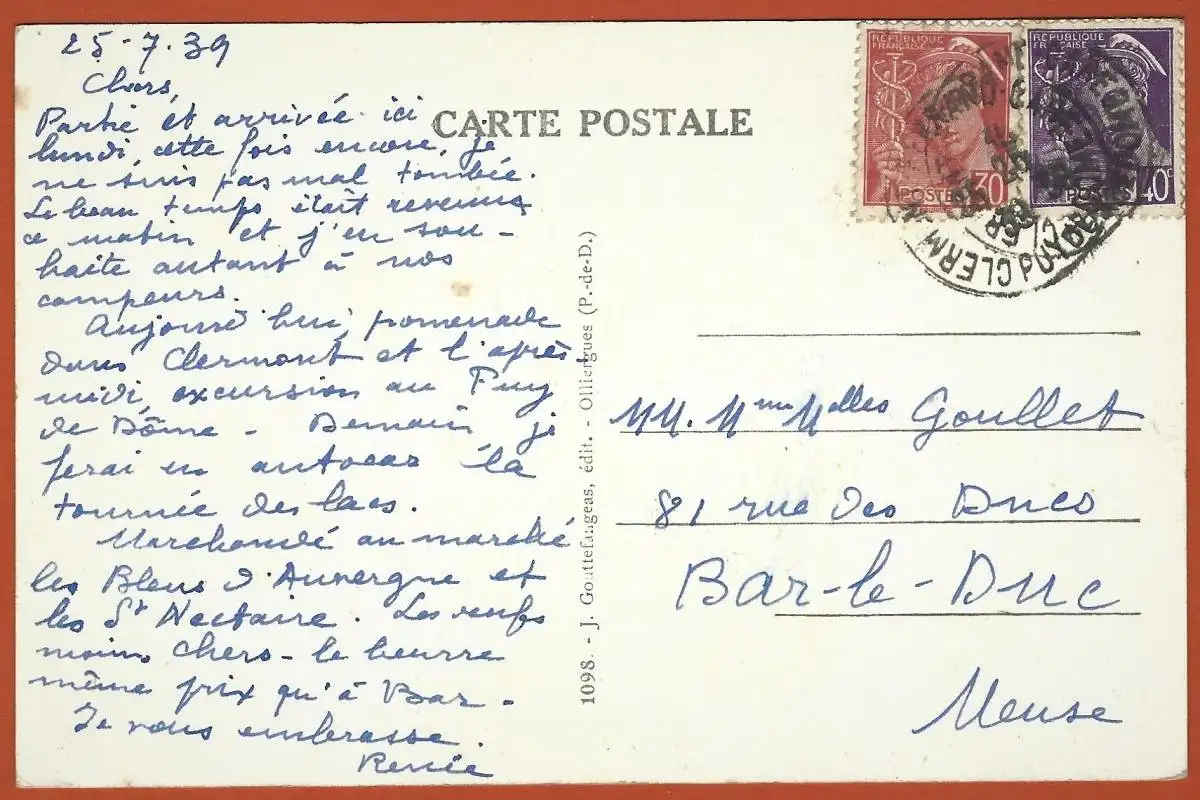 25-7.39
Chers,
Partie et arrivée ici
lundi, cette fois encore, je
ne suis pas mal tombée.
Le beau temps était revenu
ce matin et j'en sou-
haite autant à nos
campeurs.
Aujourd'hui, promenade
dans Clermont et l'après-
midi excursion au Puy
de Dôme - Demain je
ferai en autocar la
tournée des lacs.
Marchandé au marché
les Bleus d'Auvergne et
les St Nectaire. Les oeufs
moins chers - le beurre
même prix qu'à Bar.
Je vous embrasse.
Renée
CARTE POSTALE
1098. - J. Gouttefangeas, édit. - Olliergues (P.-de-D.)
RÉPUBLIQUE
FRANÇAISE
POSTES 30
RÉPUBLIQUE
FRANÇAISE
POSTES 40c
CLERM
PUY DE
MM. Mme Melles Goullet
81 rue des Ducs
Bar-le-Duc
Meuse